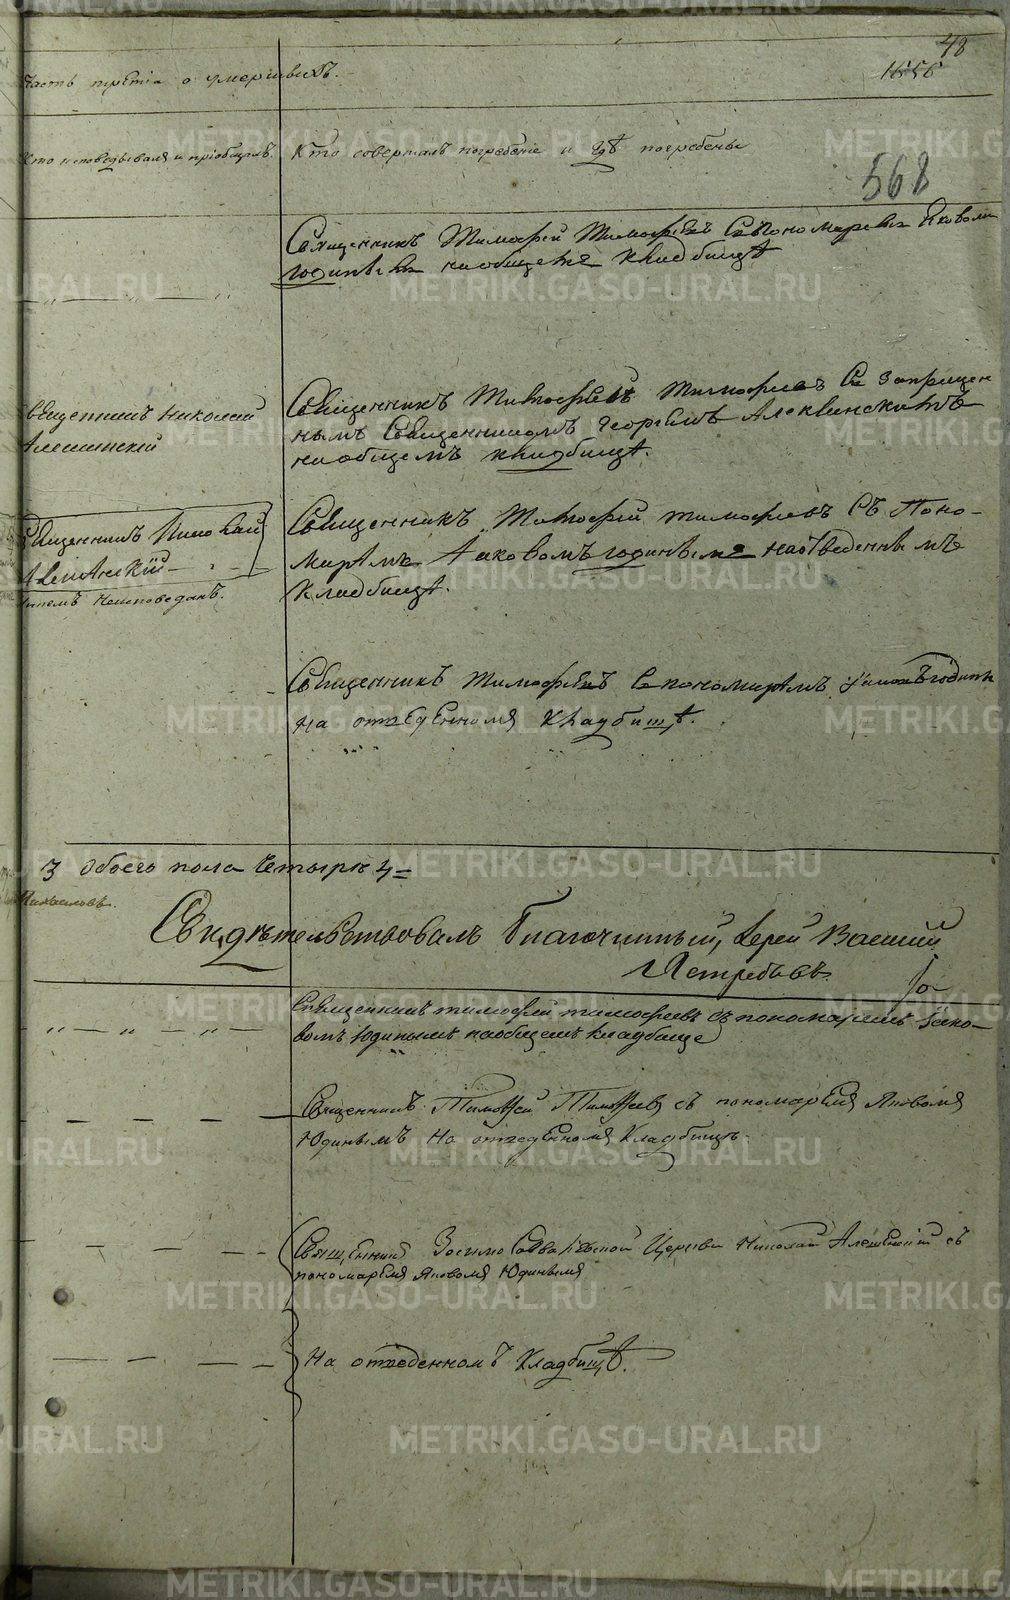 48
1656
Часть третіа о умершихъ.
Кто исповедывалъ и пріобщалъ.
Кто совершалъ погребеніе и гдѣ погребены
568
Священникъ Тимофей Тимофѣевъ Съ Пономаремъ Яковомъ
Юдинымъ на общемъ кладбищѣ
Священникъ Николай
Алешинскій
Священникъ Тимофей Тимофиевъ Съ запрещен
нымъ Священникомъ Георгіемъ
на общемъ кладбищѣ.
Священникъ Николай
Алешинскій
Неисповеданъ.
Священникъ Тимофей Тимофиевъ Съ Поно-
марѣмъ Іаковомъ Юдинымъ на отведеннымъ
Кладбищѣ.
Священникъ Тимофѣевъ Съ пономарѣмъ Юдинымъ
На отведенномя Кладбищѣ.
3 Обоего пола Четырѣ 4=
Свидѣтельствовалъ Благочинный, Іерей Василий
Ястребовъ
Священникъ Тимофей Тимофеевъ съ пономаремъ Яко-
вомъ Юдинымъ на общемъ кладбище
Священникъ Тимоѳей Тимоѳеевъ съ пономарёмя Яковомя
Юдинымъ На отведенномя Кладбищѣ.
Священникъ Зосимо Савватіевской Церкви Николай Алешенскій съ
пономарёмя Яковомя Юдинымя
На отведенномъ Кладбищѣ.
METRIKI.GASO-URAL.RU